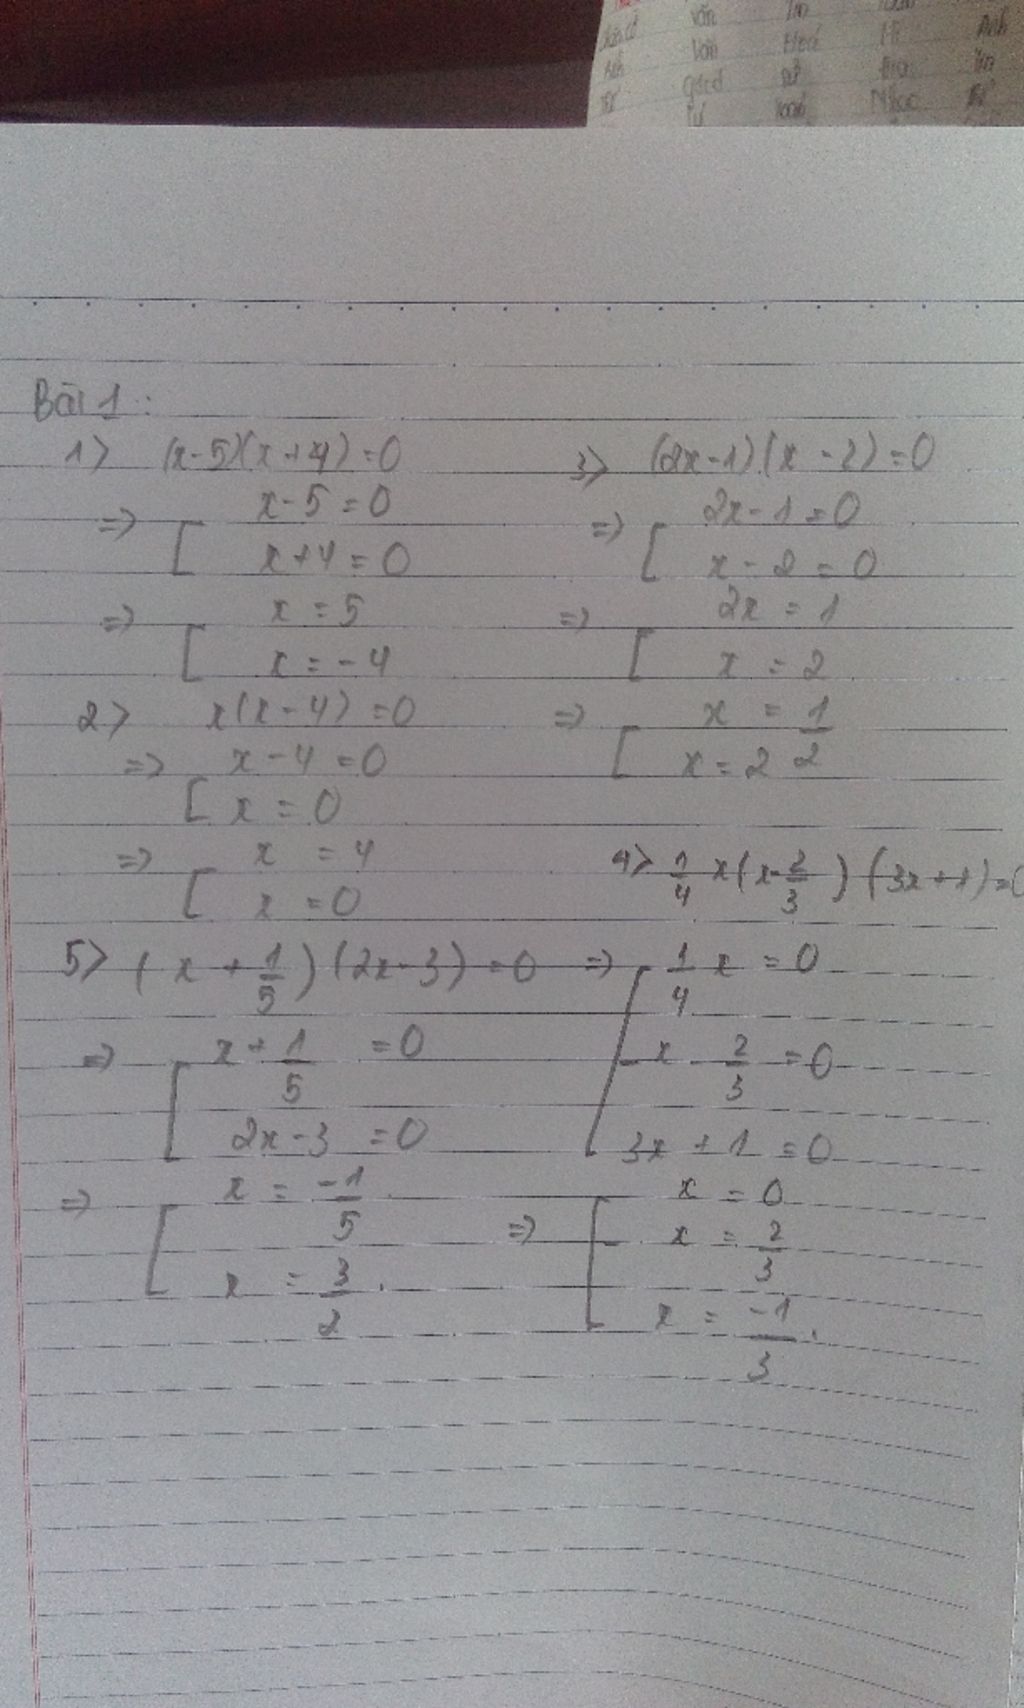 Văn
Anh
Văn
Bài 1 :
1> (x-5)(x+4)=0
=> [ x-5=0
x+4=0
=> [ x = 5
x = -4
2> x(x-4)=0
=> [ x-4=0
x = 0
=> [ x = 4
x = 0
3> (2x-1)(x-2)=0
=> [ 2x-1=0
x-2=0
=> [ 2x = 1
x = 2
=> [ x = 1/2
x = 2
4> 1/4 x(x-2/3)(3x+1)=0
=> [ 1/4 x = 0
x - 2/3 = 0
3x+1 = 0
=> [ x = 0
x = 2/3
x = -1/3 .
5> (x + 1/5)(2x-3)=0
=> [ x + 1/5 = 0
2x-3 = 0
=> [ x = -1/5
x = 3/2 .